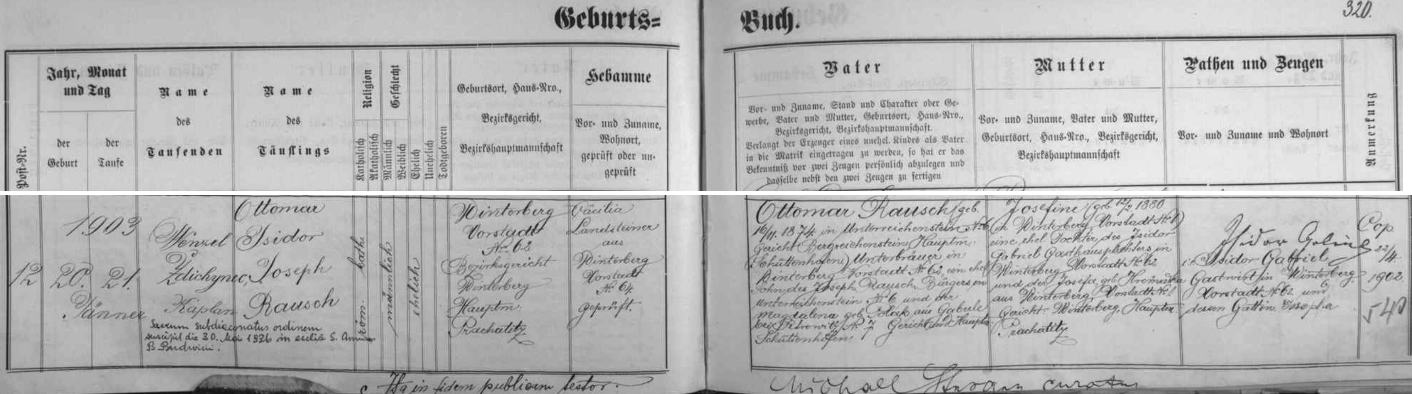 Geburts=
Buch.
320.
Post-Nr.
Jahr, Monat
und Tag
der
Geburt
der
Taufe
Name
des
Taufenden
Name
des
Täuflings
Religion
Katholisch
Akatholisch
Geschlecht
Männlich
Weiblich
Ehelich
Unehelich
Todtgeboren
Geburtsort, Haus-Nro.,
Bezirksgericht,
Bezirkshauptmannschaft
Hebamme
Vor- und Zuname,
Wohnort,
geprüft oder un-
geprüft
Vater
Vor- und Zuname, Stand und Charakter oder Ge-
werbe, Vater und Mutter, Geburtsort, Haus-Nro.,
Bezirksgericht, Bezirkshauptmannschaft.
Verlangt der Erzeuger eines unehel. Kindes als Vater
in die Matrik eingetragen zu werden, so hat er das
Bekenntniß vor zwei Zeugen persönlich abzulegen und
dasselbe nebst den zwei Zeugen zu fertigen
Mutter
Vor- und Zuname, Vater und Mutter,
Geburtsort, Haus-Nro., Bezirksgericht,
Bezirkshauptmannschaft
Pathen und Zeugen
Vor- und Zuname und Wohnort
Anmerkung
12
1903
20. 21.
Jänner
Wenzel
Zdichynec,
Kaplan
Ottomar
Isidor
Joseph
Rausch
Sacrum subdiaconatus ordinem
suscepit die 30. Mai 1926 in eccl&ia S. Annae
B. Budwini.
röm. kath.
männlich
ehelich
Winterberg
Vorstadt
Nr 62
Bezirksgericht
Winterberg
Hauptm.
Prachatitz
Cäcilia
Landsteiner
aus
Winterberg
Vorstadt
Nr 64
geprüft.
Ottomar Rausch (geb.
16/11. 1874 in Unterreichenstein Nr 6
Gericht Bergreichenstein Hauptm.
Schüttenhofen) Unterbräuer in
Winterberg Vorstadt Nr 62, ein ehel.
Sohn des Joseph Rausch, Bürgers in
Unterreichenstein Nr 6 und der
Magdalena geb. aus
Nr 7 Gericht und Hauptm.
Schüttenhofen
Josefine (geb. 12/2 1880
in Winterberg Vorstadt Nr 1)
eine ehel. Tochter des Isidor
Gabriel Gasthauspächters in
Winterberg Vorstadt Nr 62
und der Josefa geb.
aus Winterberg Vorstadt Nr 1
Gericht Winterberg, Hauptm.
Prachatitz
Isidor Gabriel
Isidor Gabriel
Gastwirt in Winterberg
Vorstadt Nr 62 und
dessen Gattin Josepha
Cop
22/4
1902
540
in fidem publicam testor.
Michael curatus